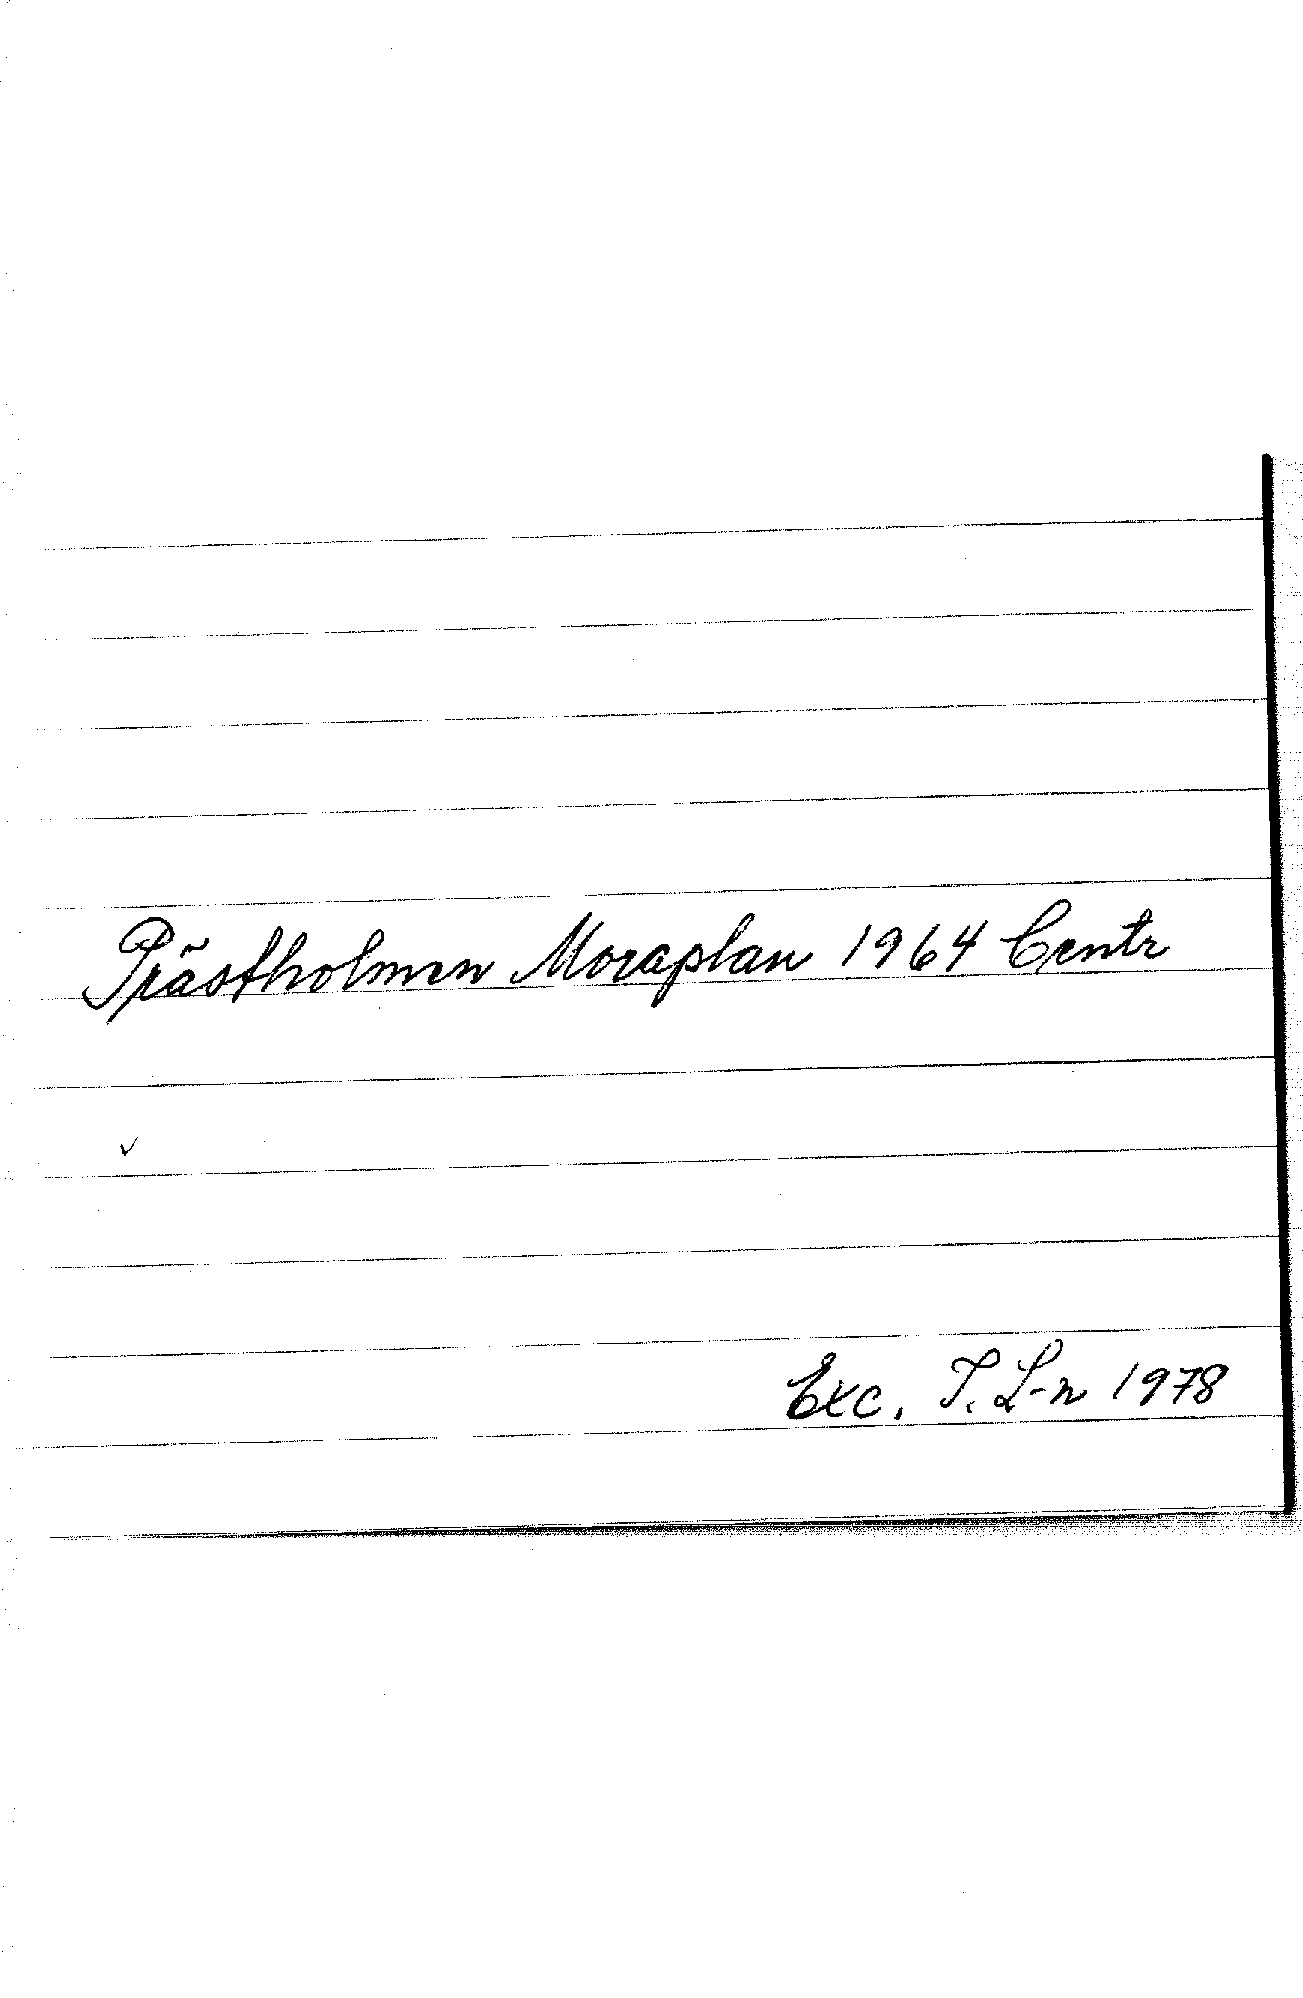 Prästholmen Moraplan 1964 Centr
✓
Exc. T. L-n 1978